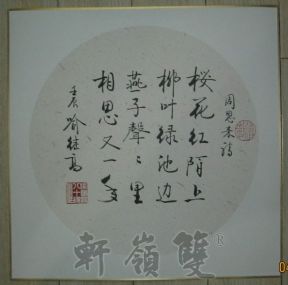 周恩来诗
樱花红陌上
柳叶绿池边
燕子聲〻里
相思又一年
壬辰 喻继高
雙嶺軒®